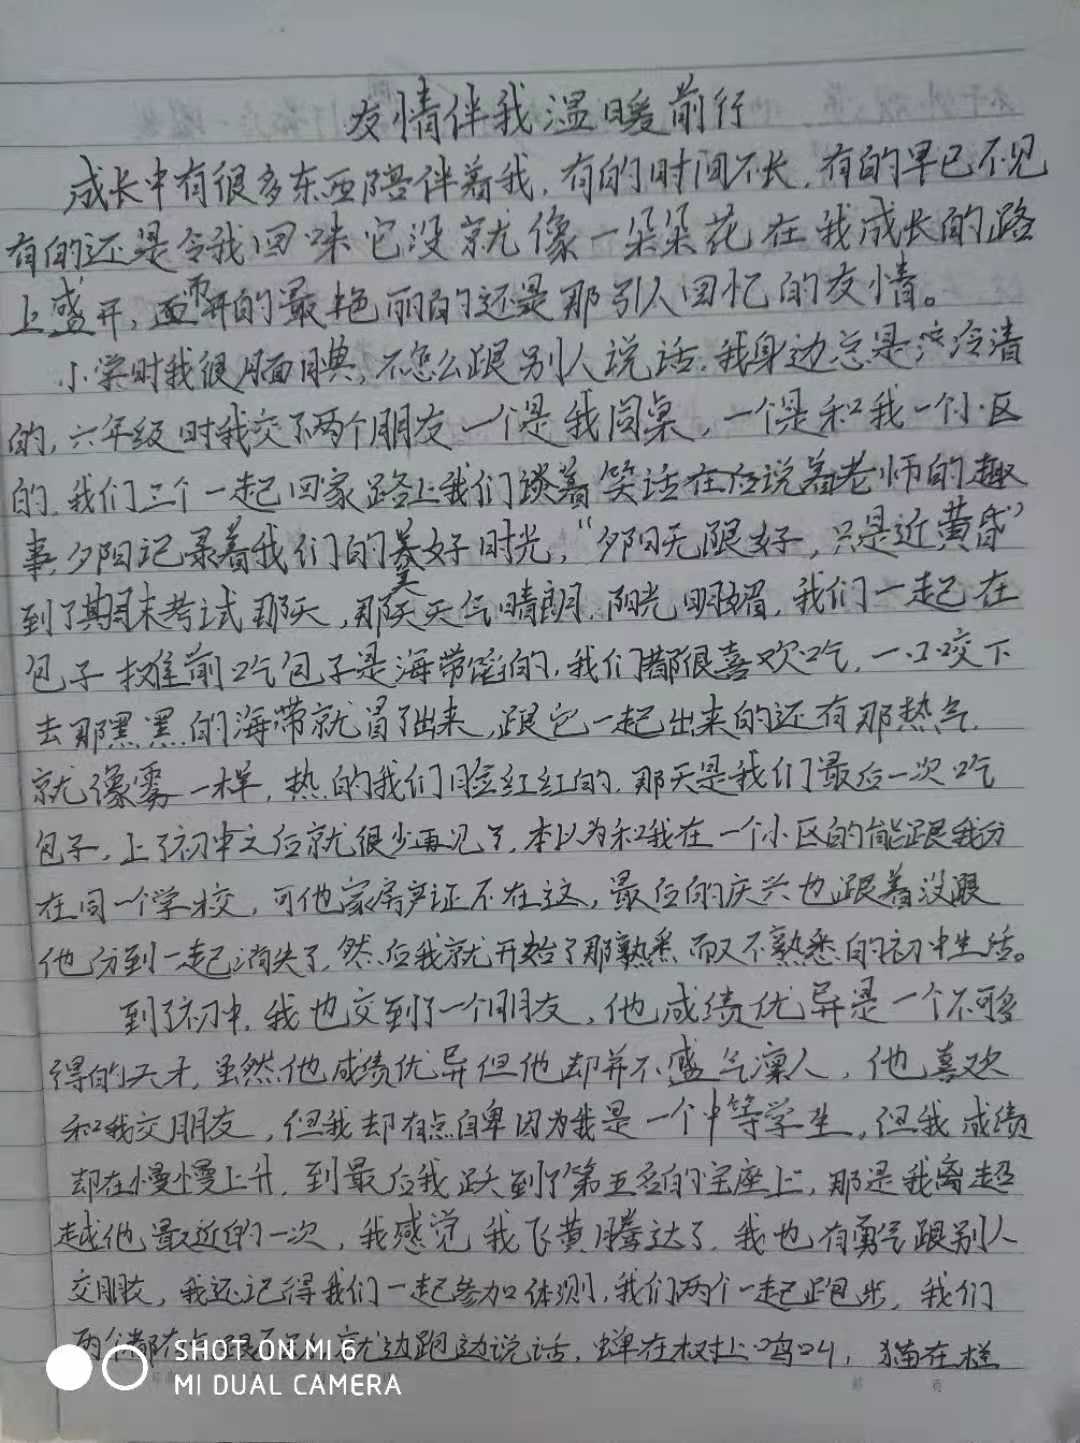 友情伴我温暖前行
成长中有很多东西陪伴着我，有的时间不长，有的早已不见
有的还是令我回味它没就像一朵朵花在我成长的路
上盛开，而开的最艳丽的还是那引人回忆的友情。
小学时我很腼腆，不怎么跟别人说话，我身边总是冷清
的，六年级时我交了两个朋友一个是我同桌，一个是和我一个小区
的，我们三个一起回家路上我们谈着笑话在后说着老师的趣
事，夕阳记录着我们的美好时光，“夕阳无限好，只是近黄昏”
到了期末考试那天，那天天气晴朗，阳光明媚，我们一起在
包子摊前吃包子是海带馅的，我们都很喜欢吃，一口咬下
去那黑黑的海带就冒了出来，跟它一起出来的还有那热气，
就像雾一样，热的我们脸红红的，那天是我们最后一次吃
包子，上了初中之后就很少再见了，本以为和我在一个小区的能跟我分
在同一个学校，可他家房产证不在这，最后的庆兴也跟着没跟
他分到一起消失了，然后我就开始了那熟悉而又不熟悉的初中生活。
到了初中，我也交到了一个朋友，他成绩优异是一个不可多
得的天才，虽然他成绩优异但他却并不盛气凛人，他喜欢
和我交朋友，但我却有点自卑因为我是一个中等学生，但我成绩
却在慢慢上升，到最后我跃到了第五名的宝座上，那是我离超
越他最近的一次，我感觉我飞黄腾达了，我也有勇气跟别人
交朋友，我还记得我们一起参加体测，我们两个一起跑步，我们
两个都在 就边跑边说话，蝉在树上鸣叫，猫在栏
SHOT ON MI 6
MI DUAL CAMERA